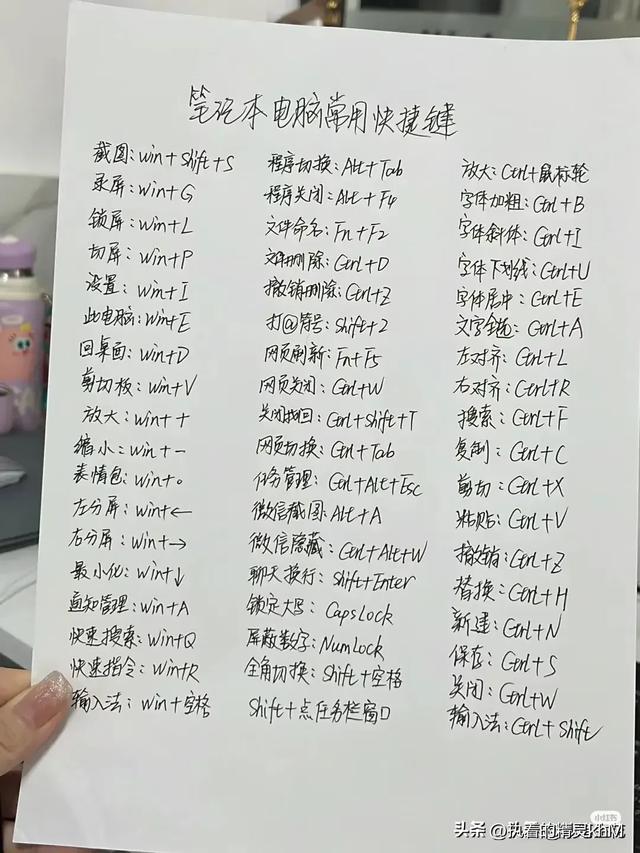 笔记本电脑常用快捷键
截图: Win+Shift+S
录屏: Win+G
锁屏: Win+L
切屏: Win+P
设置: Win+I
此电脑: Win+E
回桌面: Win+D
剪切板: Win+V
放大: Win++
缩小: Win+-
表情包: Win+。
左分屏: Win+←
右分屏: Win+→
最小化: Win+↓
通知管理: Win+A
快速搜索: Win+Q
快速指令: Win+R
输入法: Win+空格
程序切换: Alt+Tab
程序关闭: Alt+F4
文件命名: Fn+F2
文件删除: Ctrl+D
撤销删除: Ctrl+Z
打@符号: Shift+2
网页刷新: Fn+F5
网页关闭: Ctrl+W
关闭找回: Ctrl+Shift+T
网页切换: Ctrl+Tab
任务管理: Ctrl+Alt+Esc
微信截图: Alt+A
微信隐藏: Ctrl+Alt+W
聊天换行: Shift+Enter
锁定大写: CapsLock
屏蔽数字: NumLock
全角切换: Shift+空格
Shift+点任务栏窗口
放大: Ctrl+鼠标轮
字体加粗: Ctrl+B
字体斜体: Ctrl+I
字体下划线: Ctrl+U
字体居中: Ctrl+E
文字全选: Ctrl+A
左对齐: Ctrl+L
右对齐: Ctrl+R
搜索: Ctrl+F
复制: Ctrl+C
剪切: Ctrl+X
粘贴: Ctrl+V
撤销: Ctrl+Z
替换: Ctrl+H
新建: Ctrl+N
保存: Ctrl+S
关闭: Ctrl+W
输入法: Ctrl+Shift
小红书
头条 @执着的精灵